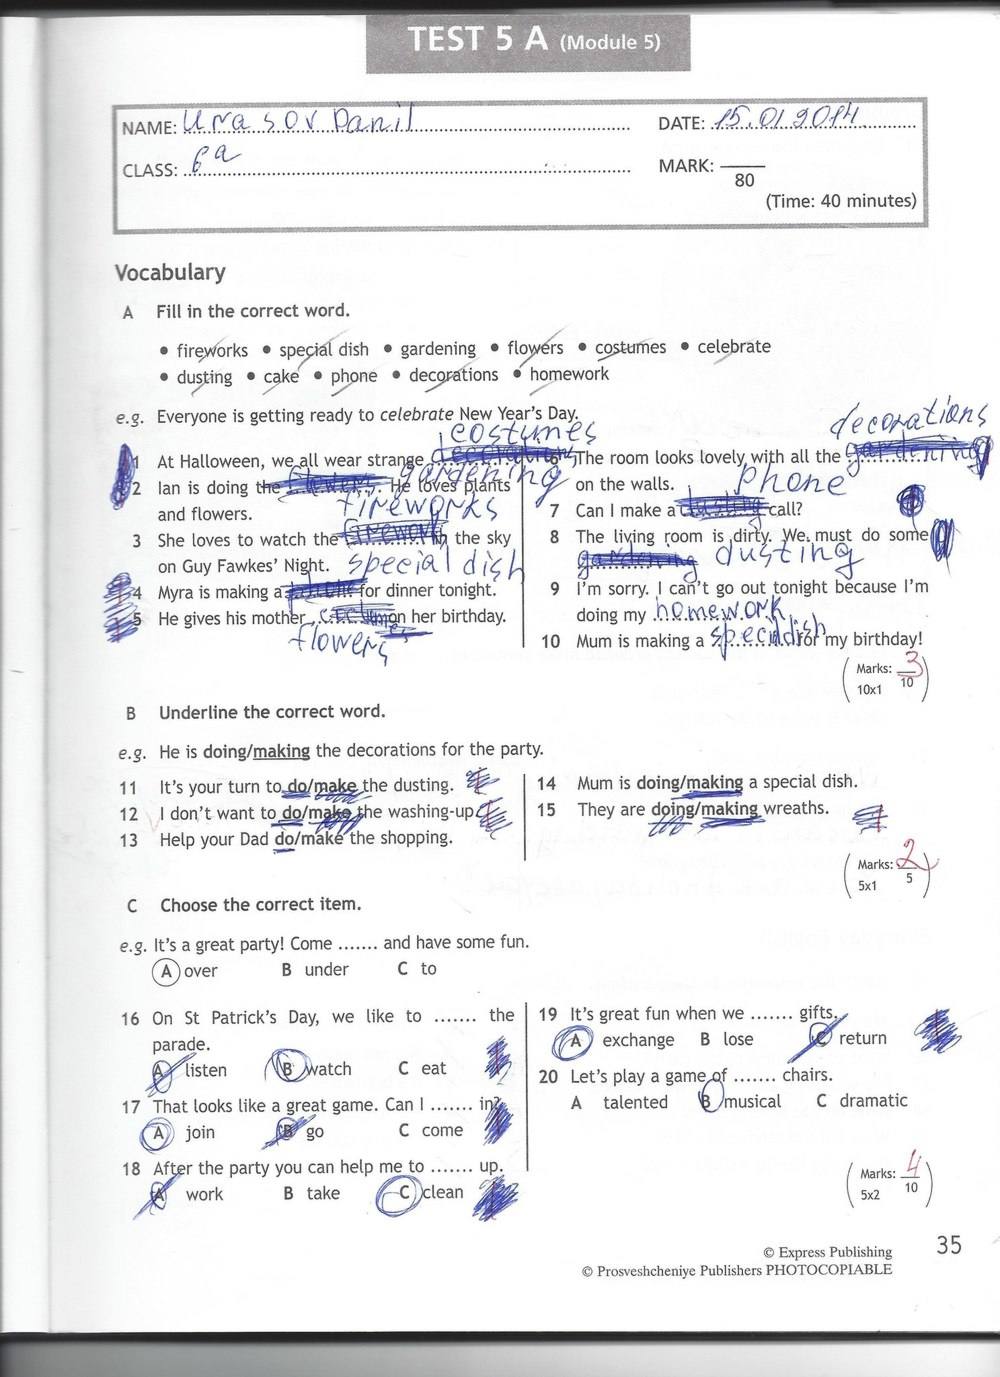 TEST 5 A (Module 5)
NAME: Urasov Danil DATE: 15.01.2014
CLASS: 6a MARK: 80
(Time: 40 minutes)
Vocabulary
A Fill in the correct word.
• fireworks • special dish • gardening • flowers • costumes • celebrate
• dusting • cake • phone • decorations • homework
e.g. Everyone is getting ready to celebrate New Year's Day.
costumes
1 At Halloween, we all wear strange
gardening
2 Ian is doing the He loves plants
and flowers.
fireworks
3 She loves to watch the in the sky
on Guy Fawkes' Night.
special dish
4 Myra is making a for dinner tonight.
5 He gives his mother on her birthday.
flowers
decorations
The room looks lovely with all the gardening
on the walls.
phone
7 Can I make a dusting call?
8 The living room is dirty. We must do some
gardening dusting
9 I'm sorry. I can't go out tonight because I'm
doing my homework
10 Mum is making a special dish for my birthday!
Marks: 3
10x1 10
B Underline the correct word.
e.g. He is doing/making the decorations for the party.
11 It's your turn to do/make the dusting.
12 I don't want to do/make the washing-up.
13 Help your Dad do/make the shopping.
14 Mum is doing/making a special dish.
15 They are doing/making wreaths.
Marks: 2
5x1 5
C Choose the correct item.
e.g. It's a great party! Come ....... and have some fun.
A over B under C to
16 On St Patrick's Day, we like to ....... the
parade.
A listen B watch C eat
17 That looks like a great game. Can I ....... in?
A join B go C come
18 After the party you can help me to ....... up.
A work B take C clean
19 It's great fun when we ....... gifts.
A exchange B lose C return
20 Let's play a game of ....... chairs.
A talented B musical C dramatic
Marks: 4
5x2 10
© Express Publishing
© Prosveshcheniye Publishers PHOTOCOPIABLE
35